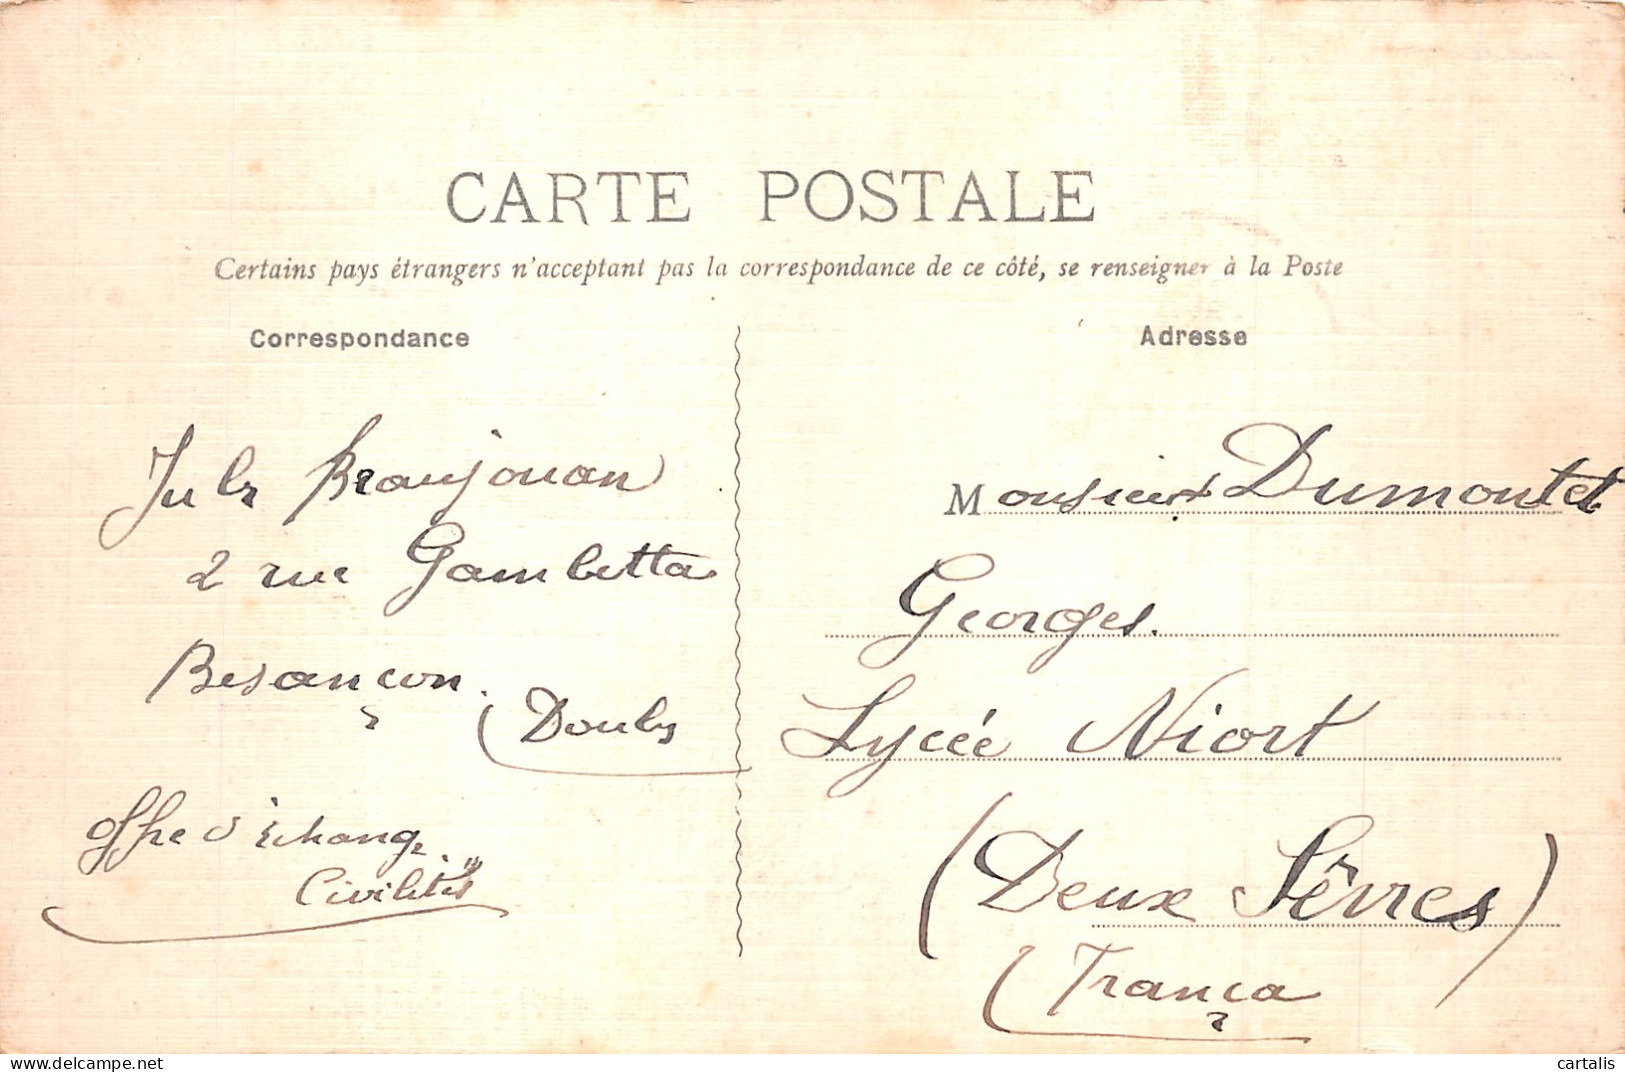 CARTE POSTALE
Certains pays étrangers n'acceptant pas la correspondance de ce côté, se renseigner à la Poste
Correspondance
Jules Beaujouan
2 rue Gambetta
Besançon.
(Doubs
offre d'échange
Civilités
Adresse
Monsieur Dumontet
Georges.
Lycée Niort
(Deux Sêvres)
(França
cartalis